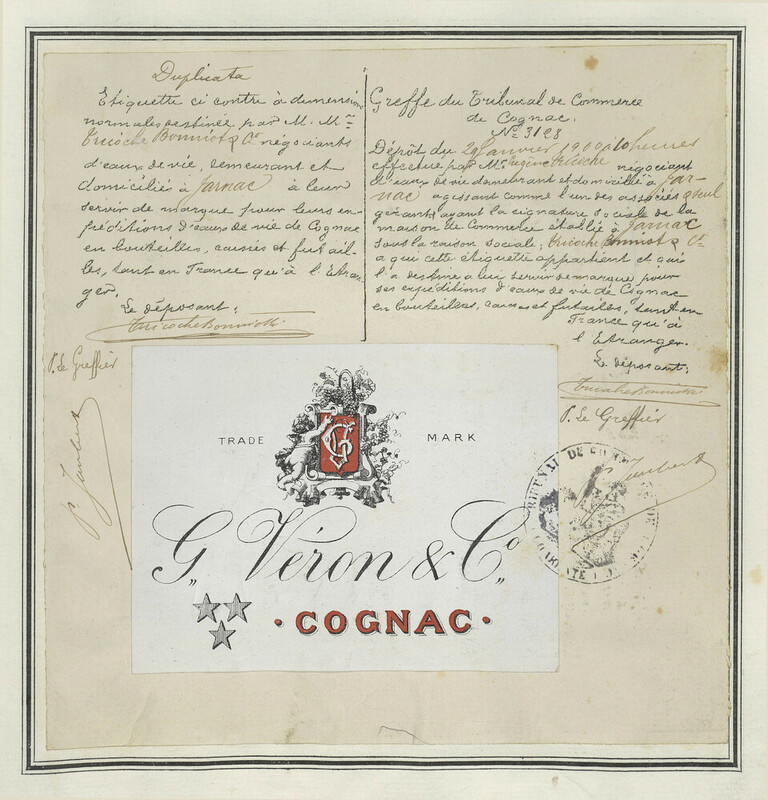 Duplicata
Etiquette ci contre à dimension
normales destinée par M. M.rs
Tricoche Bonniot & Cie négociants
d'eaux de vie, demeurant et
domiciliés à Jarnac à leur
servir de marque pour leurs ex-
péditions d'eaux de vie de Cognac
en bouteilles, caisses et futail-
les, tant en France qu'à l'Etran-
ger.
Le déposant:
Tricoche Bonniot
P. Le Greffier
Greffe du Tribunal de Commerce
de Cognac.
No 3128
Dépôt du 29 Janvier 1900 à 10 heures
effectué par Mr Eugène Tricoche négociant
d'eaux de vie demeurant et domicilié à Jar-
nac agissant comme l'un des associés seul
gérant ayant la signature sociale de la
maison de Commerce établie à Jarnac
sous la raison sociale; Tricoche Bonniot & Cie
à qui cette étiquette appartient et qui
l'a destine a lui servir de marque pour
ses expéditions d'eaux de vie de Cognac
en bouteilles, caisses et futailles, tant en
France qu'à
l'Etranger.
Le déposant;
Tricoche Bonniot
P. Le Greffier
TRADE MARK
G. Véron & Co.
· COGNAC ·
TRIBUNAL DE COM